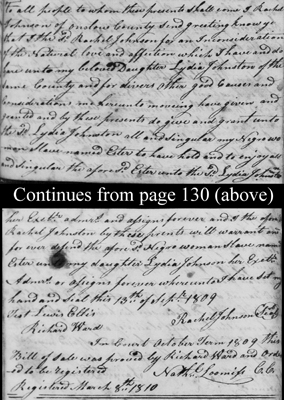 To all people to whom these presents shall come I Rachel
Johnston of onslow County Send greeting know ye
that I the Sd. Rachel Johnston for an In consideration
of the Natural love and affition which I have and do
bare unto my beloved Daughter Lydia Johnston of the
same County and for divers other good Causes and
Considerations me hereunto moveing have given and
granted and by these presents do give and grant unto
the Sd. Lydia Johnston all and singular my Negro wo
man Slave named Ester to have hold and to enjoy all
and singular the afore Sd. Ester unto the Sd. Lydia Johnston
Continues from page 130 (above)
her Exctrs. admrs. and assigns forever and I the afore
Rachel Johnston by these presents will warrant and
for ever defend the afore Sd. Negro woman Slave name
Ester unto my daughter Lydia Johnston her Exctrs.
Admrs. or assigns forever whereunto I have set my
hand and Seal this 13th of Sept. 1809
Test Lewis Ellis
Rachel Johnston Seal
Richard Ward
In Court October Term 1809 this
Bill of Sale was proved by Richard Ward and Orde
red to be registered
Nathl. Loomiss C.C.
Registered March 8th 1810